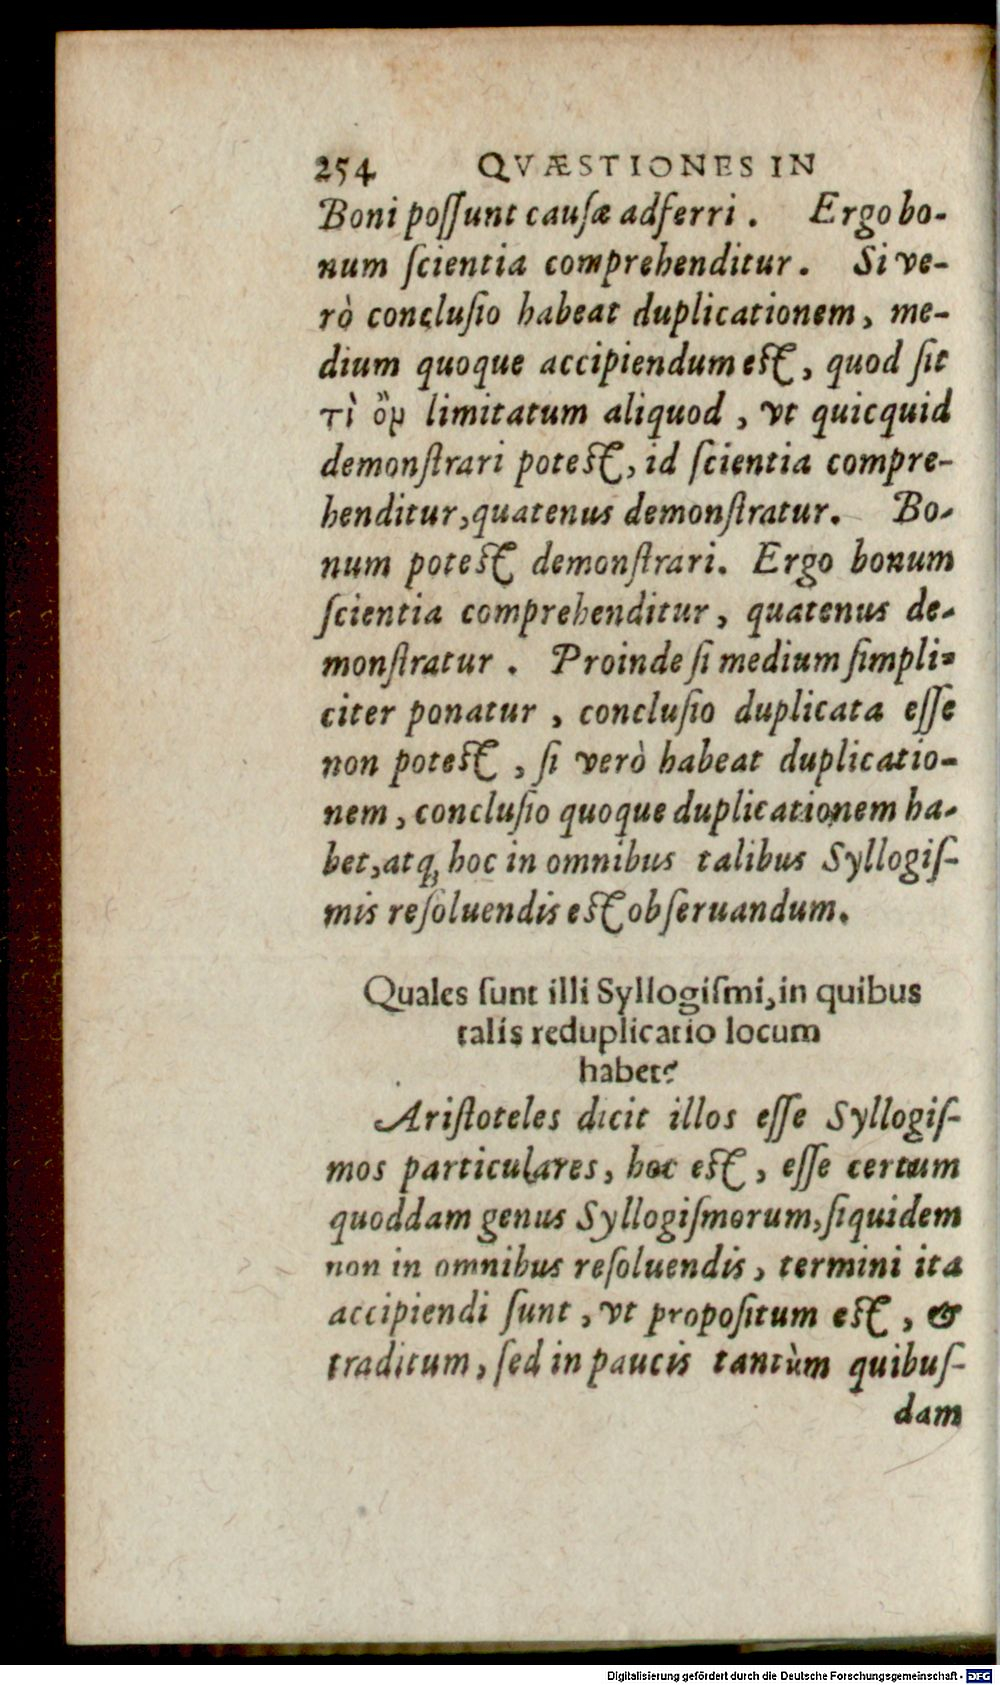 254 QVÆSTIONES IN
Boni poſſunt cauſæ adferri. Ergo bo-
num ſcientia comprehenditur. Si ve-
rò concluſio habeat duplicationem, me-
dium quoque accipiendum eſt, quod ſit
τὶ ὂν limitatum aliquod, vt quicquid
demonſtrari poteſt, id ſcientia compre-
henditur, quatenus demonſtratur. Bo-
num poteſt demonſtrari. Ergo bonum
ſcientia comprehenditur, quatenus de-
monſtratur. Proinde ſi medium ſimpli-
citer ponatur, concluſio duplicata eſſe
non poteſt, ſi verò habeat duplicatio-
nem, concluſio quoque duplicationem ha-
bet, atq; hoc in omnibus talibus Syllogiſ-
mis reſoluendis eſt obſeruandum.
Quales ſunt illi Syllogiſmi, in quibus
talis reduplicatio locum
habet?
Ariſtoteles dicit illos eſſe Syllogiſ-
mos particulares, hoc eſt, eſſe certum
quoddam genus Syllogiſmorum, ſiquidem
non in omnibus reſoluendis, termini ita
accipiendi ſunt, vt propoſitum eſt, &
traditum, ſed in paucis tantùm quibuſ-
dam
Digitalisierung gefördert durch die Deutsche Forschungsgemeinschaft - DFG